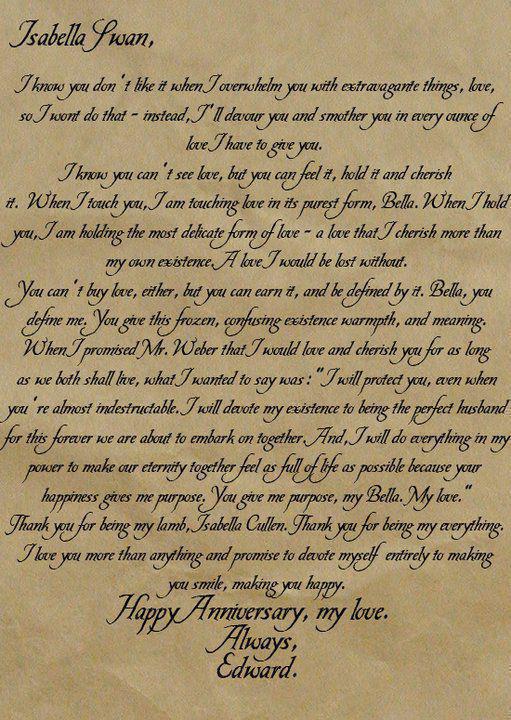 Isabella Swan,
I know you don't like it when I overwhelm you with extravagante things, love,
so I wont do that - instead, I'll devour you and smother you in every ounce of
love I have to give you.
I know you can't see love, but you can feel it, hold it and cherish
it. When I touch you, I am touching love in its purest form, Bella. When I hold
you, I am holding the most delicate form of love - a love that I cherish more than
my own existence. A love I would be lost without.
You can't buy love, either, but you can earn it, and be defined by it. Bella, you
define me. You give this frozen, confusing existence warmpth, and meaning.
When I promised Mr. Weber that I would love and cherish you for as long
as we both shall live, what I wanted to say was: "I will protect you, even when
you're almost indestructable. I will devote my existence to being the perfect husband
for this forever we are about to embark on together. And, I will do everything in my
power to make our eternity together feel as full of life as possible because your
happiness gives me purpose. You give me purpose, my Bella. My love."
Thank you for being my lamb, Isabella Cullen. Thank you for being my everything.
I love you more than anything and promise to devote myself entirely to making
you smile, making you happy.
Happy Anniversary, my love.
Always,
Edward.